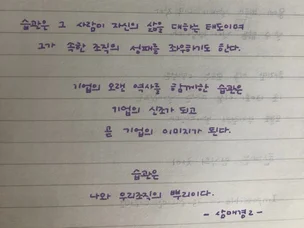 습관은 그 사람이 자신의 삶을 대하는 태도이며
그가 속한 조직의 성패를 좌우하기도 한다.
기업의 오랜 역사를 함께한 습관은
기업의 신조가 되고
곧 기업의 이미지가 된다.
습관은
나와 우리조직의 뿌리이다.
- 삼매경2 -